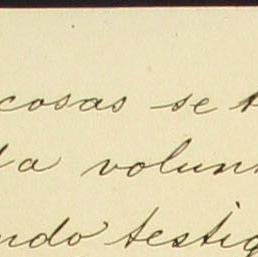 cosas se t
ta volun
ndo testig